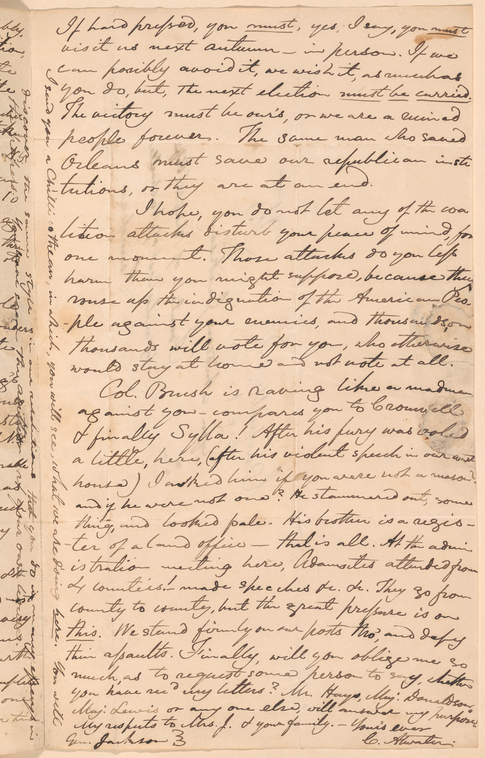 If hard pressed, you must, yes, I say, you must
visit us next autumn — in person. If we
can possibly avoid it, we wish it, as much as
you do, but, the next election must be carried.
The victory must be our's, or we are a ruined
people forever. The same man who saved
Orleans must save our republican insti
tutions, or they are at an end.
I hope, you do not let any of the coa
lition attacks disturb your peace of mind, for
one moment. Those attacks do you less
harm than you might suppose, because they
rouse up the indignation of the American Peo-
ple against your enemies, and thousands on
thousands will vote for you, who otherwise
would stay at home and not vote at all.
Col. Brush is raving like a madman
against you — compares you to Cromwell
& finally Sylla! After his fury was cooled
a little, here, (after his violent speech in our court
house) I asked him if you were not a mason
and if he were not one? He stammered out, some
thing, and looked pale. His brother is a regis-
ter of a land office — that is all. At the admin
istration meeting here, Adamsites attended from
counties! made speeches &c. &c. They go from
county to county, but the great pressure is on
this. We stand firmly on our posts tho', and defy
their assaults. Finally, will you oblige me so
much, as to request some person to say, whether
you have rec'd my letters? Mr. Hays, Maj. Donaldson
Maj. Lewis or any one else, will answer my purpose
My respects to Mrs. J. & your family. — Your's ever
Gen. Jackson C. Atwater.
I send you a Chillicothean, in which, you will see, what we are doing here. You will
discover the same style in our